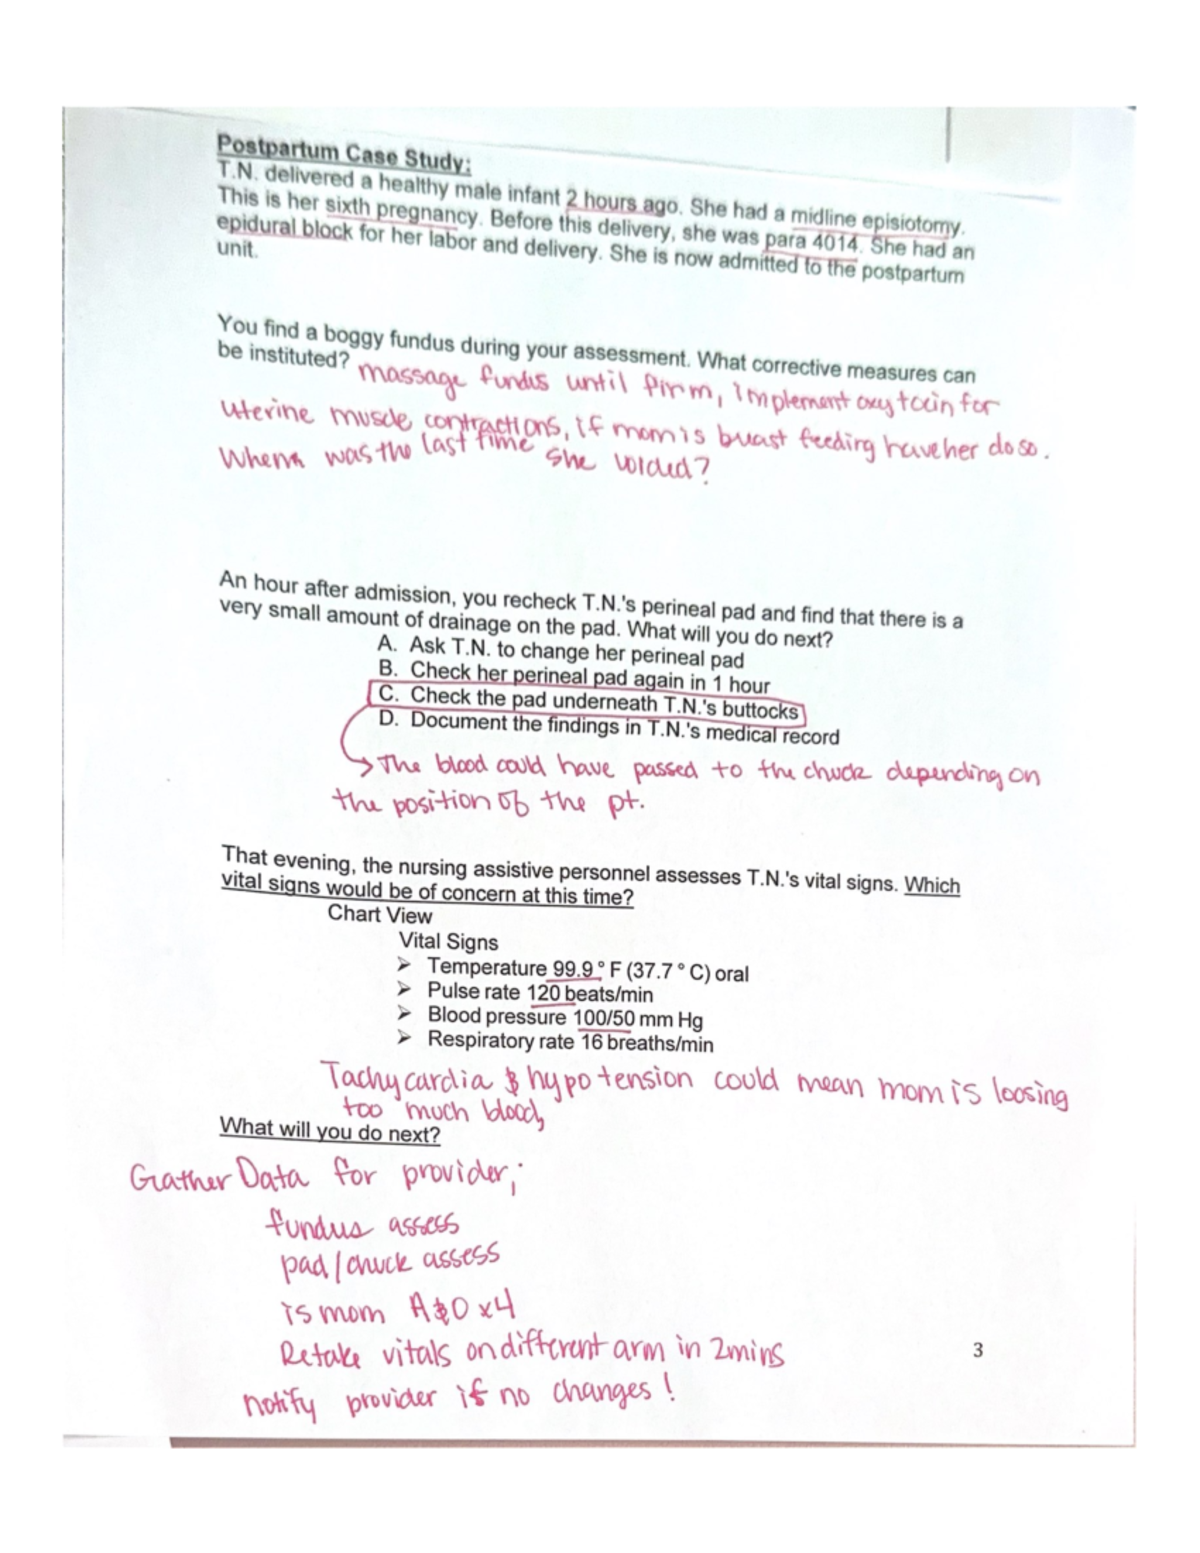 Postpartum Case Study:
T.N. delivered a healthy male infant 2 hours ago. She had a midline episiotomy.
This is her sixth pregnancy. Before this delivery, she was para 4014. She had an
epidural block for her labor and delivery. She is now admitted to the postpartum
unit.
You find a boggy fundus during your assessment. What corrective measures can
be instituted? massage fundus until firm, implement oxytocin for
uterine muscle contractions, if mom is breast feeding have her do so.
When was the last time she voided?
An hour after admission, you recheck T.N.'s perineal pad and find that there is a
very small amount of drainage on the pad. What will you do next?
A. Ask T.N. to change her perineal pad
B. Check her perineal pad again in 1 hour
C. Check the pad underneath T.N.'s buttocks
D. Document the findings in T.N.'s medical record
→ The blood could have passed to the chuck depending on
the position of the pt.
That evening, the nursing assistive personnel assesses T.N.'s vital signs. Which
vital signs would be of concern at this time?
Chart View
Vital Signs
➢ Temperature 99.9 ° F (37.7 ° C) oral
➢ Pulse rate 120 beats/min
➢ Blood pressure 100/50 mm Hg
➢ Respiratory rate 16 breaths/min
Tachycardia & hypotension could mean mom is loosing
too much blood,
What will you do next?
Gather Data for provider;
fundus assess
pad/chuck assess
is mom A&O x4
Retake vitals on different arm in 2mins
3
notify provider if no changes!